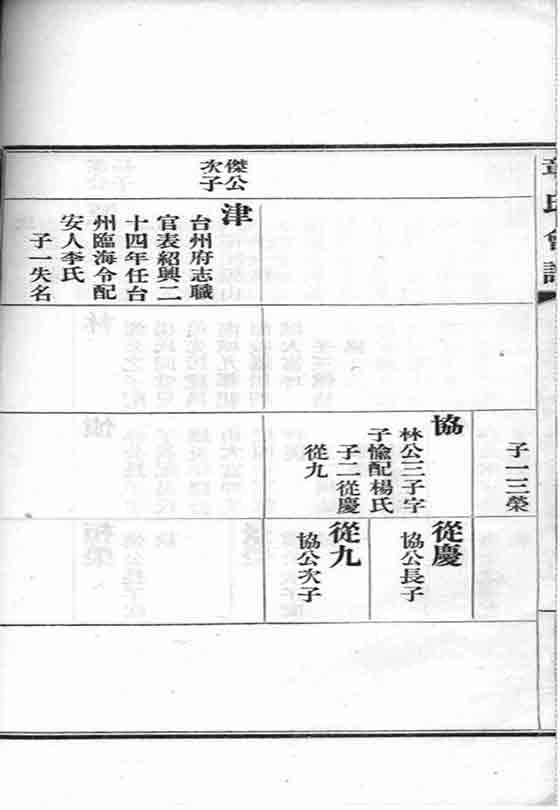 章氏會譜
子一三榮
協
林公三子字
子愉配楊氏
子二從慶
從九
從慶
協公長子
從九
協公次子
傑公
次子
津
台州府志職
官表紹興二
十四年任台
州臨海令配
安人李氏
子一失名